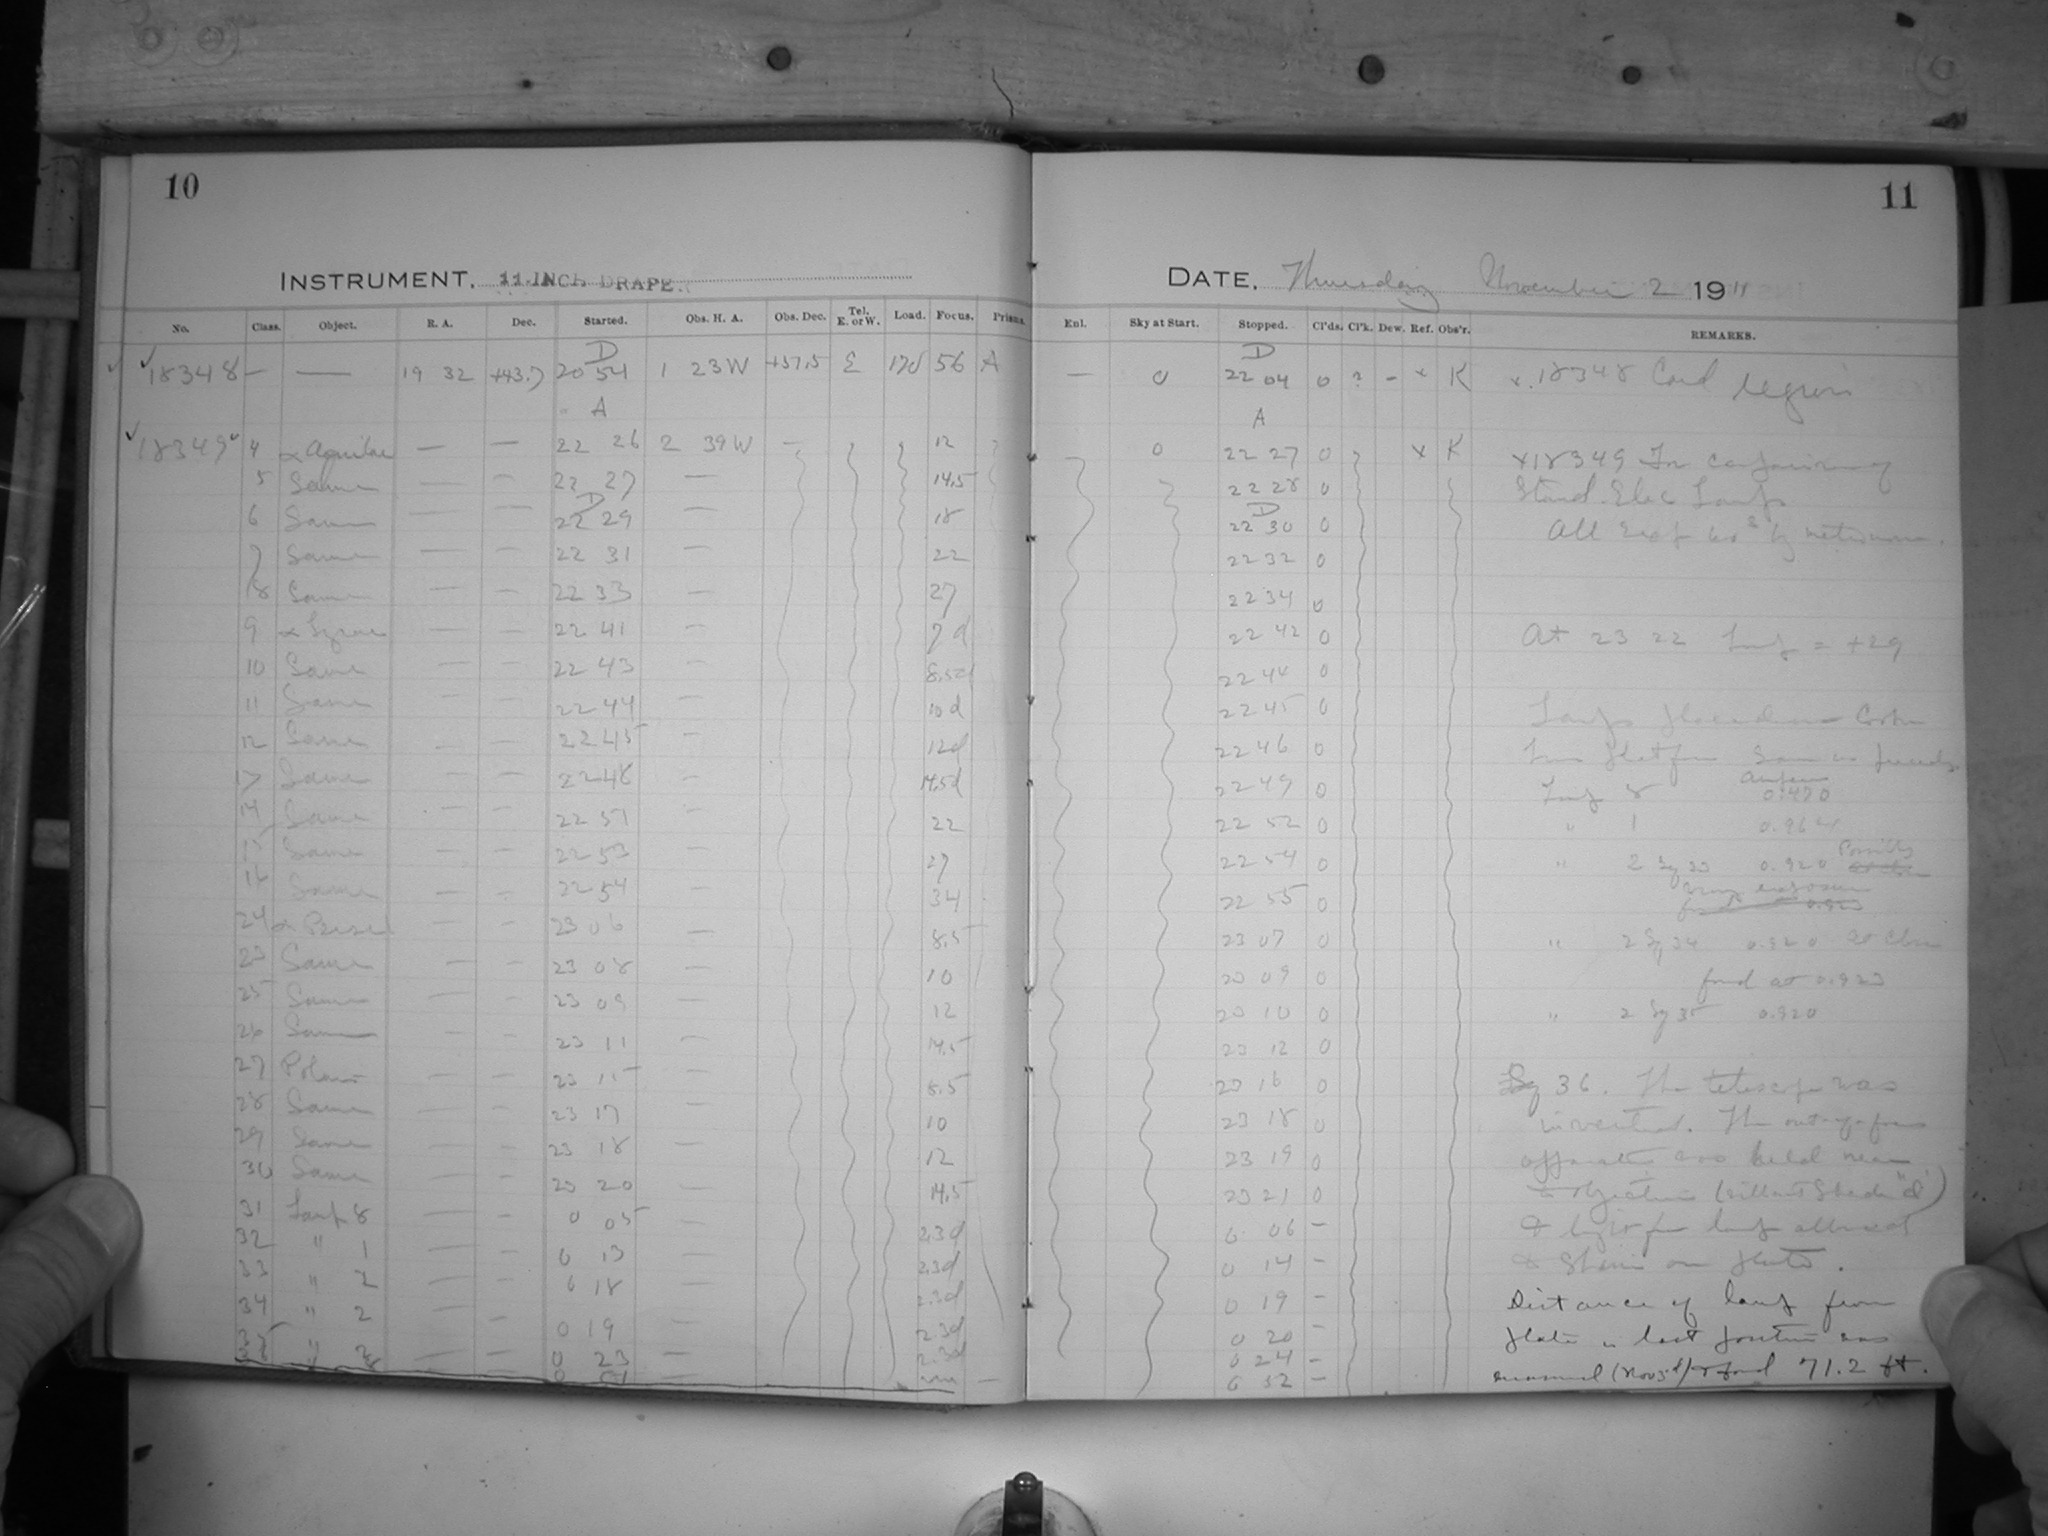 10
INSTRUMENT. 11-INCH DRAPER.
No. Class. Object. R. A. Dec. Started. Obs. H. A. Obs. Dec. Tel. E. or W. Load. Focus. Prisms.
18348 — — 19 32 +43.7 D 20 54 1 23 W +37.5 E 56 A
A
18349 4 α Aquilae — — 22 26 2 39 W — 12
5 Same — — 22 27 — 14.5
6 Same — — D 22 29 — 18
7 Same — — 22 31 — 22
8 Same — — 22 33 — 27
9 α Lyrae — — 22 41 — 7d
10 Same — — 22 43 — 8.5d
11 Same — — 22 44 — 10d
12 Same — — 22 45 — 12d
Same — — 22 48 — 14.5d
14 Same — — 22 51 — 22
15 Same — — 22 53 — 27
16 Same — — 22 54 — 34
24 α — — 23 06 — 8.5
Same — — 23 08 — 10
25 Same — — 23 09 — 12
26 Same — — 23 11 — 14.5
27 Polaris — — 23 15 — 8.5
28 Same — — 23 17 — 10
29 Same — — 23 18 — 12
30 Same — — 23 20 — 14.5
31 Lamp 8 — — 0 05 — 2.3d
32 " 1 — — 0 13 — 2.3d
33 " 2 — — 0 18 — 2.3d
34 " 2 — 0 19 — 2.3d
35 " 2 — — 0 23 — 2.3d
11
DATE. Thursday November 2 1911
Enl. Sky at Start. Stopped. Cl'ds. Cl'k. Dew. Ref. Obs'r. REMARKS.
— 0 D 22 04 0 ? - x K x 18348 Cord region
A
0 22 27 0 x K x 18349 For comparison of
22 28 0 Stand. Elec Lamp
D 22 30 0 All Exp 60s by metronome.
22 32 0
22 34 0
22 42 0 At 23 22 = +29
22 44 0
22 45 0 Lamps placed on
22 46 0
22 49 0 Lamp 8 Ampere 0.470
22 52 0 " 1
22 54 0 " 2 Sq 33 0.920 Possibly
22 55 0 exposure
23 07 0 " 2 Sq 34 0.920
23 09 0 found at 0.923
23 10 0 " 2 Sq 35 0.920
23 12 0
23 16 0 Sq 36. The telescope was
23 18 0 inverted. The out-of-focus
23 19 0 apparatus was held near
23 21 0 objective (without Shade "d")
0 06 - & light from lamp allowed
0 14 - to shine on plate.
0 19 - Distance of lamp from
0 20 - plate in last position was
0 24 - measured (Nov 3d) & found 71.2 ft.
0 32 -